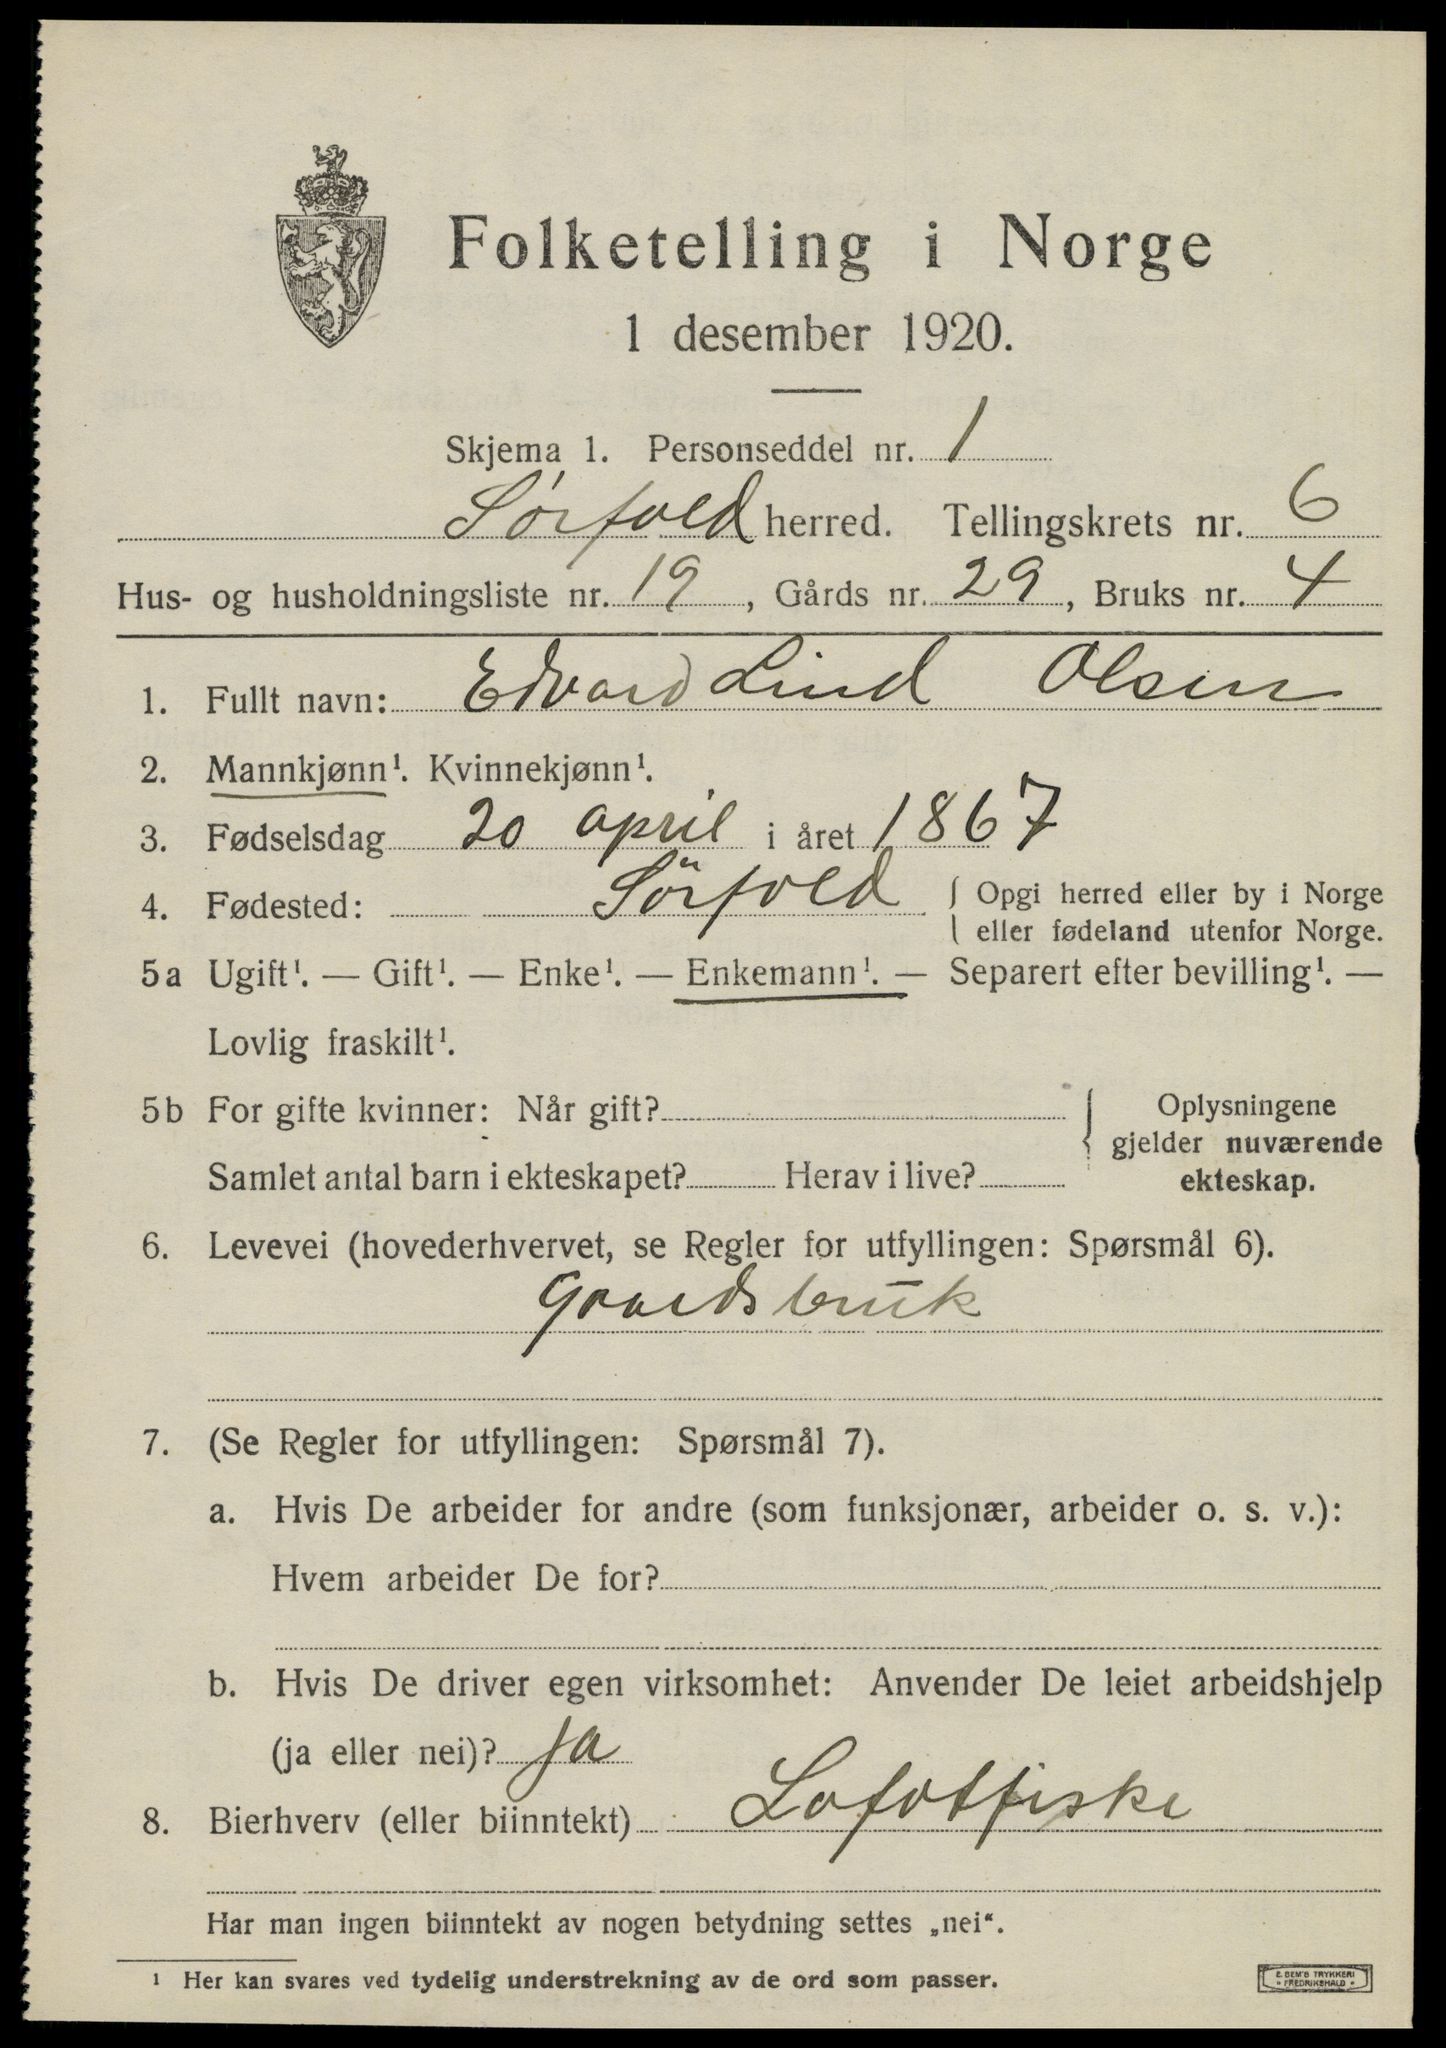 Folketelling i Norge
1 desember 1920.
Skjema 1. Personseddel nr. 1
Sørfold herred. Tellingskrets nr. 6
Hus- og husholdningsliste nr. 19, Gårds nr. 29, Bruks nr. 4
1. Fullt navn: Edvard Lind Olsen
2. Mannkjønn¹. Kvinnekjønn¹.
3. Fødselsdag 20 april i året 1867
4. Fødested: Sörfold { Opgi herred eller by i Norge
eller fødeland utenfor Norge.
5a Ugift¹. — Gift¹. — Enke¹. — Enkemann¹. — Separert efter bevilling¹. —
Lovlig fraskilt¹.
5b For gifte kvinner: Når gift? { Oplysningene
gjelder nuværende
Samlet antal barn i ekteskapet? Herav i live? ekteskap.
6. Levevei (hovederhvervet, se Regler for utfyllingen: Spørsmål 6).
Gaardsbruk
7. (Se Regler for utfyllingen: Spørsmål 7).
a. Hvis De arbeider for andre (som funksjonær, arbeider o. s. v.):
Hvem arbeider De for?
b. Hvis De driver egen virksomhet: Anvender De leiet arbeidshjelp
(ja eller nei)? ja
8. Bierhverv (eller biinntekt) Lofotfiske
Har man ingen biinntekt av nogen betydning settes „nei“.
¹ Her kan svares ved tydelig understrekning av de ord som passer.
E. SEM'S TRYKKERI
FREDRIKSHALD